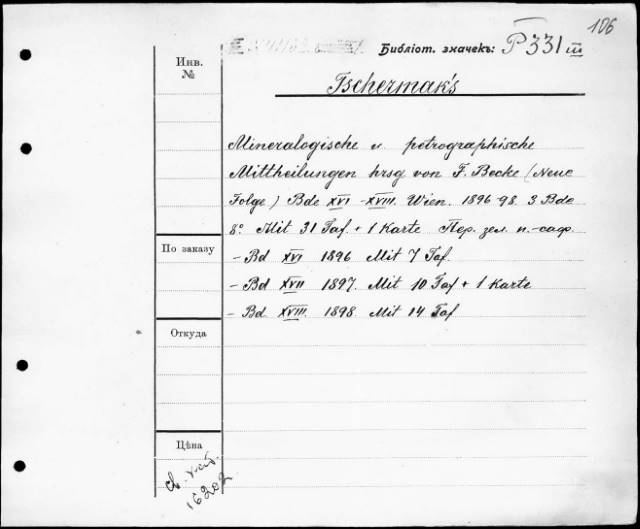 106
Инв.
№
Библіот. значекъ: P331 III
Tschermak's
Mineralogische u. petrographische
Mittheilungen hrsg von F. Becke (Neue
Folge) Bde XVI-XVIII. Wien. 1896-98. 3 Bde
8° Mit 31 Taf. + 1 Karte Пер. зел. п.-саф.
По заказу
- Bd XVI 1896 Mit 7 Taf.
- Bd XVII 1897. Mit 10 Taf + 1 Karte
- Bd. XVIII. 1898. Mit 14 Taf
Откуда
Цѣна
16202